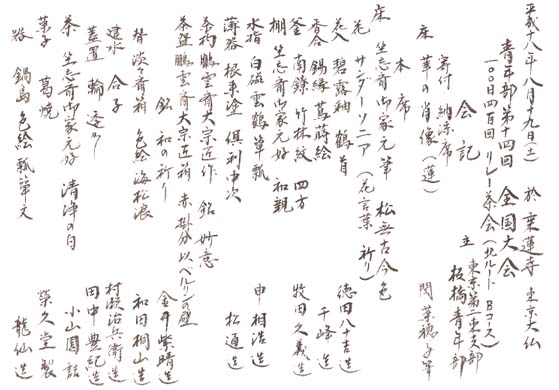 平成十八年八月十九日(土) 於 乗蓮寺 東京大仏
青年部第十四回 全国大会
一〇〇日四百回 リレー茶会(北ルート Bコース)
主 東京第二東支部
板橋青年部
会記
寄付 納涼席
床 華の肖像(蓮) 関 菜穂子筆
本席
床 坐忘斎御家元筆 松無古今色
花 サンダーソニア(花言葉 祈り)
花入 碧露釉 鶴首 徳田八十吉造
香合 錫縁 蔦蒔絵 千峰造
釜 南鐐 竹林紋 四方 牧田久義造
棚 坐忘斎御家元好 和親
水指 白磁雲鶴 箪瓢 申相浩造
薄器 根来塗 倶利中次 松通造
茶杓 鵬雲斎大宗匠作 銘 妙意
茶盌 鵬雲斎大宗匠箱 赤 掛分 以ベルリンの壁
銘 和の祈り 金井紫晴造
替 淡々斎箱 色絵海松浪 和田桐山造
建水 合子 村瀬治兵衛造
蓋置 輪 透め 田中豊紀造
茶 坐忘斎御家元好 清浄の白 小山園詰
菓子 葛焼 榮久堂製
器 鍋島 色絵瓢箪文 龍仙造